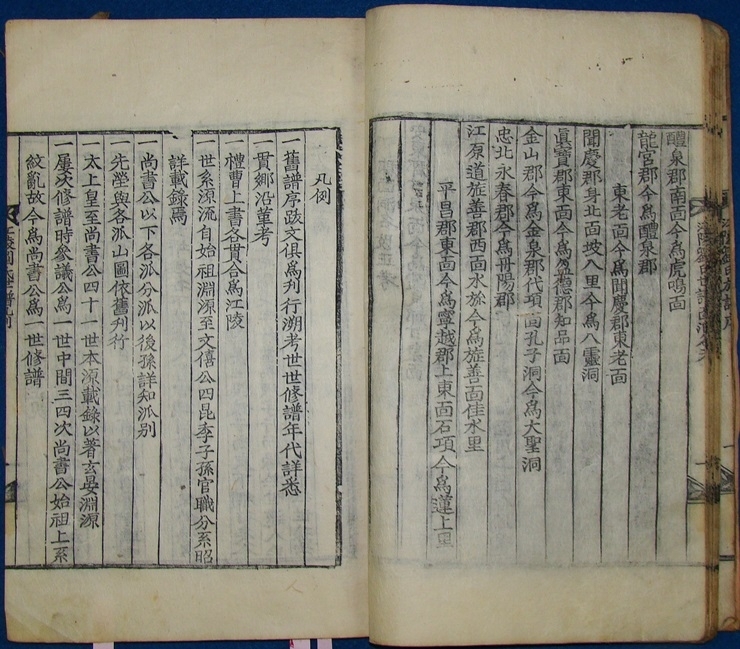 醴泉郡南面今爲虎鳴面
龍宮郡今爲醴泉郡
東老面今爲聞慶郡東老面
聞慶郡身北面坡八里今爲八靈洞
眞寶郡東面今爲盈德郡知品面
金山郡今爲金泉郡代項面孔子洞今爲大聖洞
忠北永春郡今爲丹陽郡
江原道旌善郡西面水旅今爲旌善面佳水里
平昌郡東面今爲寧越郡上東面石項今爲蓮上里
凡例
一舊譜序跋文俱爲刋行溯考世世修譜年代詳悉
一貫鄕沿革考
一禮曹上書各貫合爲江陵
一世系源流自始祖淵源至文僖公四昆季子孫官職分系昭
詳載錄焉
一尙書公以下各派分派以後孫詳知派別
一先塋與各派山圖依舊刋行
一太上皇至尙書公四十一世本源載錄以著玄晏淵源
一屢次修譜時參議公爲一世中間三四次尙書公始祖上系
紋亂故今爲尙書公爲一世修譜